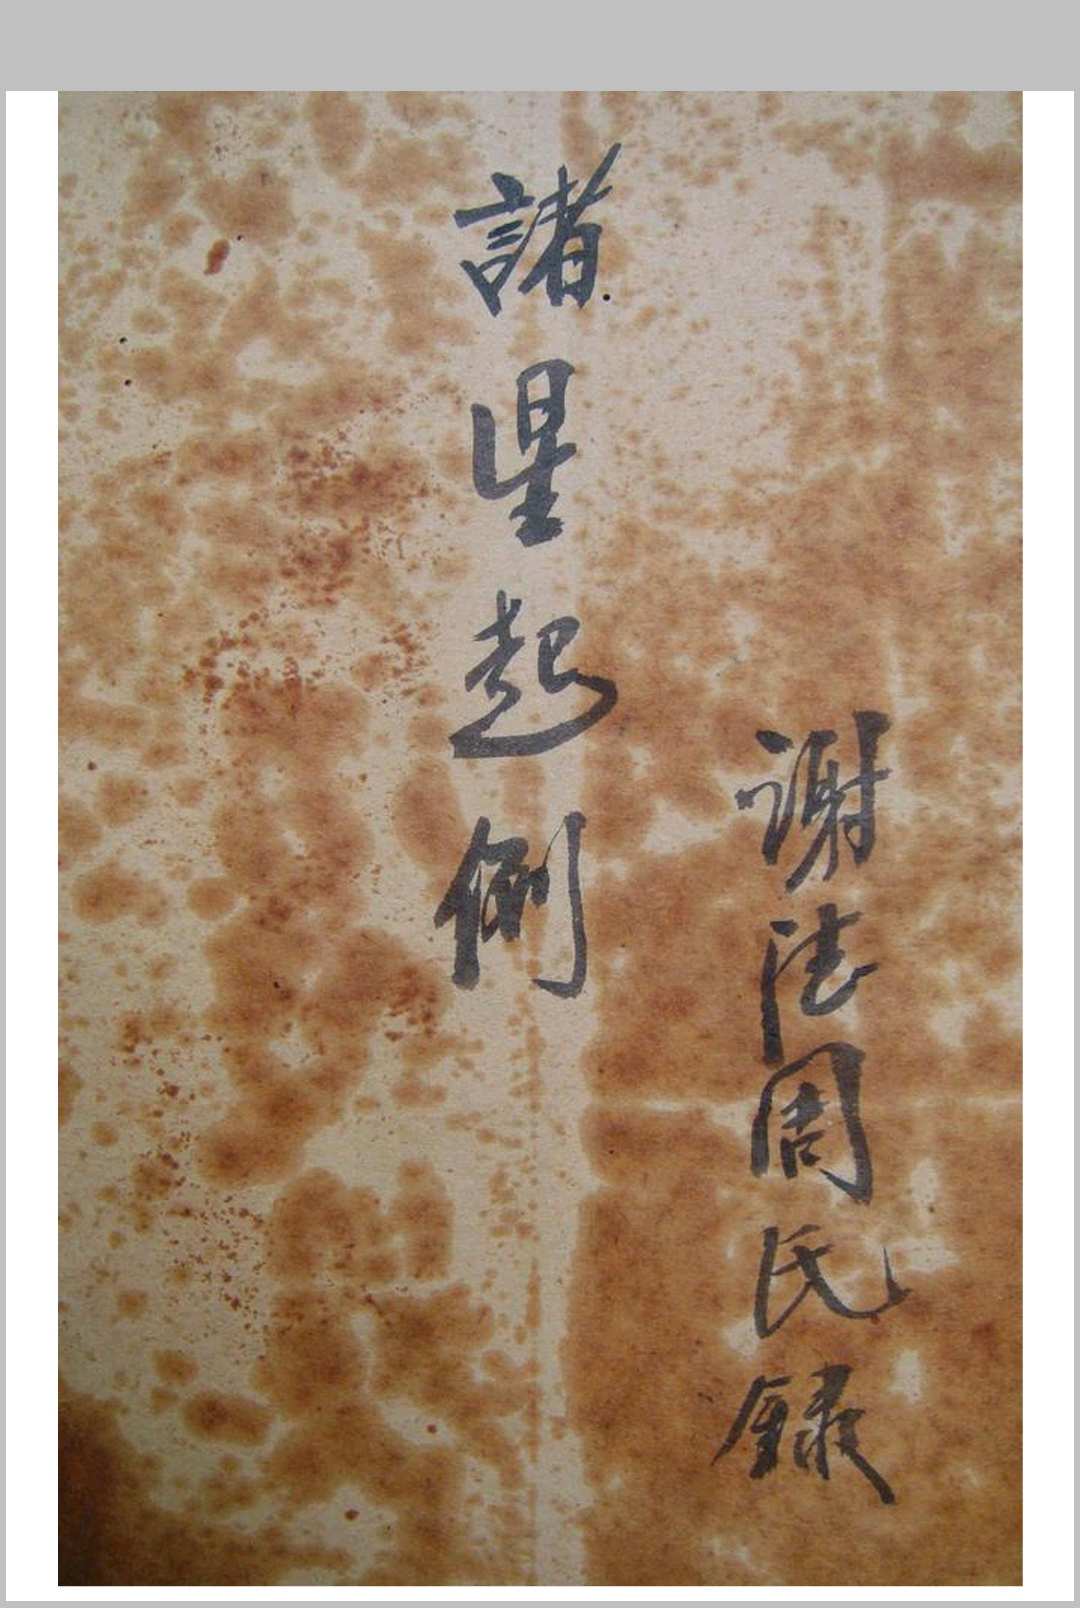 謝法周氏録
諸星起例